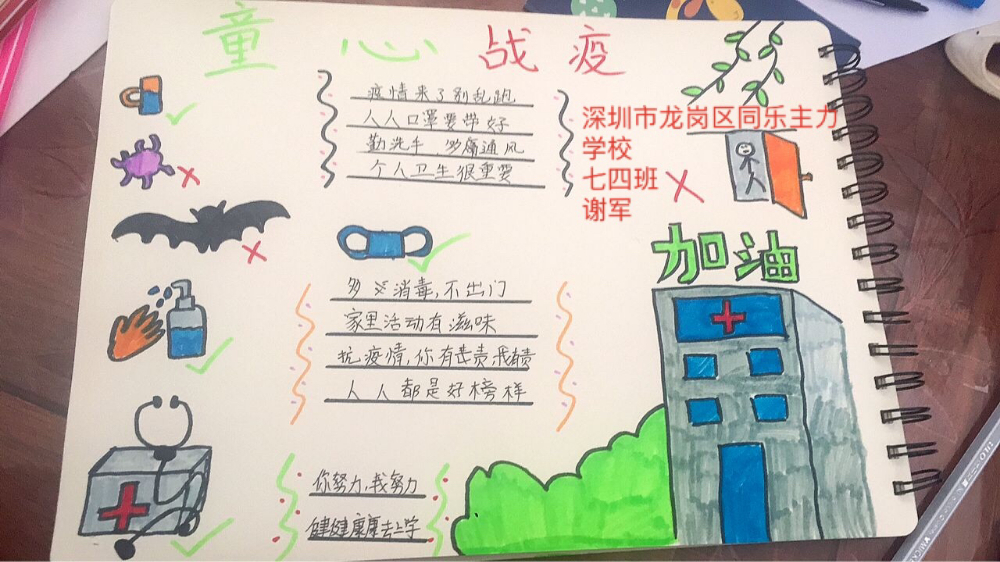 童心战疫
疫情来了别乱跑
人人口罩要带好
勤洗手,多痛通风
个人卫生很重要
深圳市龙岗区同乐主力
学校
七四班
谢军
加油
多 消毒,不出门
家里活动有滋味
抗疫情,你有责我有责
人人都是好榜样
你努力,我努力
健健康康去上学